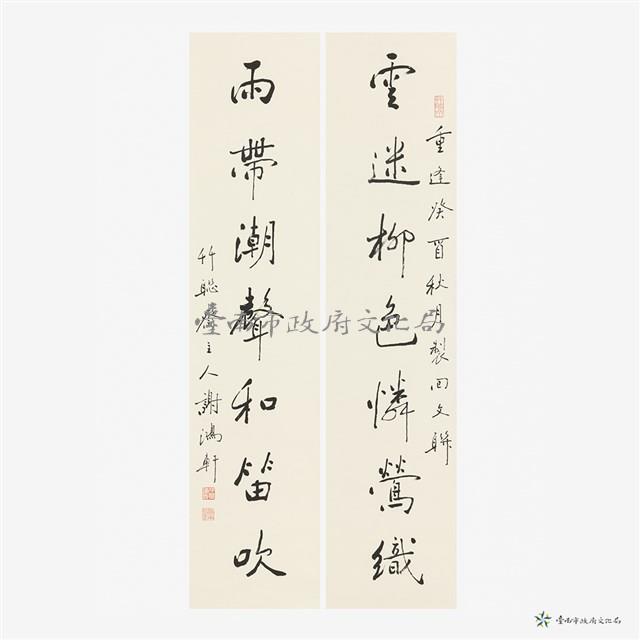 重逢癸酉秋月製回文聯
雲迷柳色憐鶯織
雨帶潮聲和笛吹
主人謝鴻軒
臺南市政府文化局
臺南市政府文化局